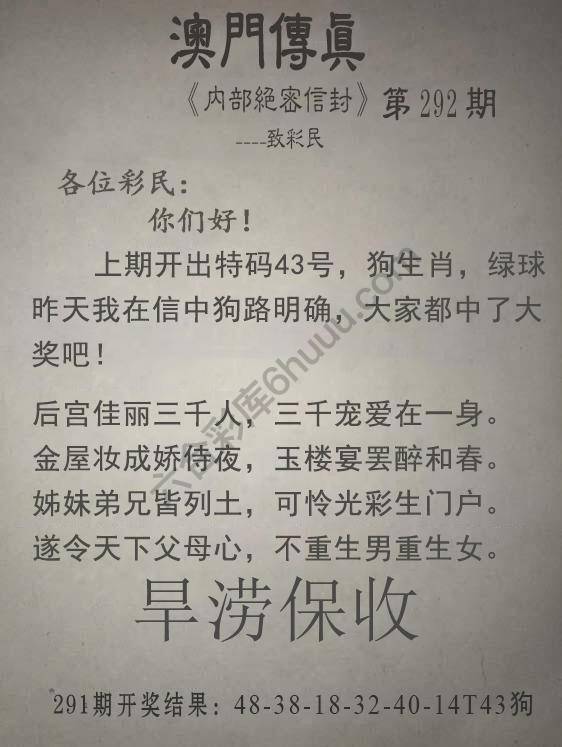 澳門傳真
《內部絕密信封》第292期
----致彩民
各位彩民：
你们好！
上期开出特码43号，狗生肖，绿球
昨天我在信中狗路明确，大家都中了大
奖吧！
后宫佳丽三千人，三千宠爱在一身。
金屋妆成娇侍夜，玉楼宴罢醉和春。
姊妹弟兄皆列土，可怜光彩生门户。
遂令天下父母心，不重生男重生女。
旱涝保收
291期开奖结果：48-38-18-32-40-14T43狗
六合彩库6huuu.com